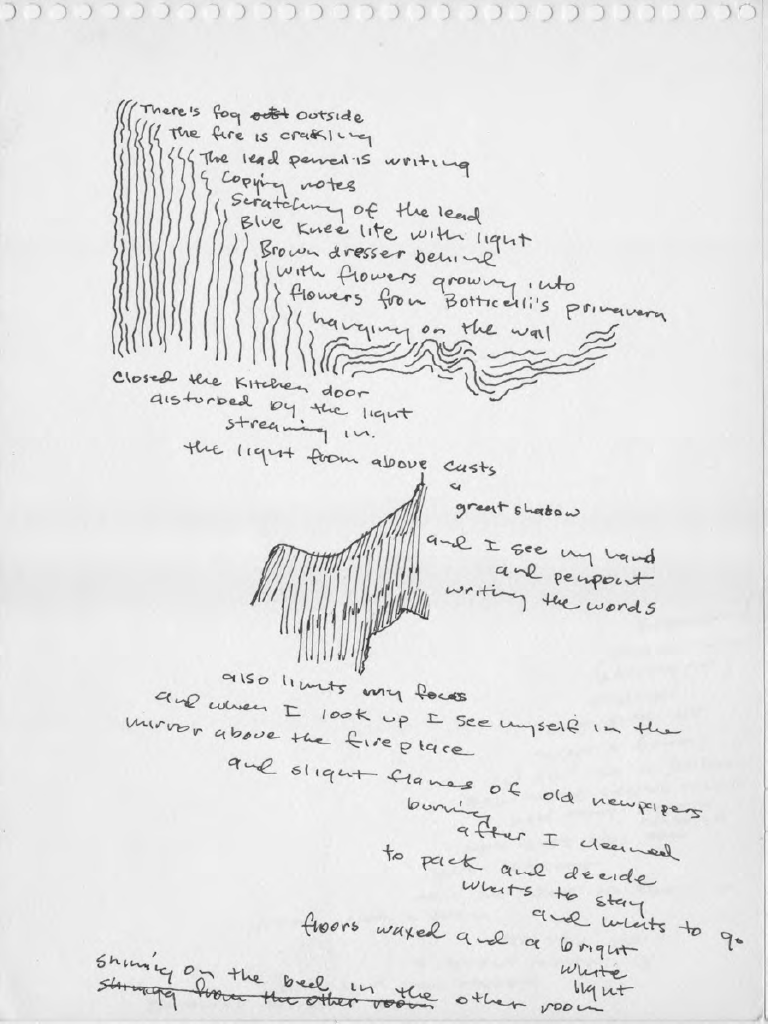 There's fog out outside
The fire is crackling
The lead pencil is writing
Copying notes
Scratching of the lead
Blue knee lite with light
Brown dresser behind
with flowers growing into
flowers from Botticelli's primavera
hanging on the wall
Closed the kitchen door
disturbed by the light
streaming in.
the light from above casts
a
great shadow
and I see my hand
and penpoint
writing the words
also limits my focus
and when I look up I see myself in the
mirror above the fireplace
and slight flames of old newpapers
burning
after I cleaned
to pack and decide
whats to stay
and whats to go
floors waxed and a bright
white
light
shining on the bed in the other room
shining from the other room